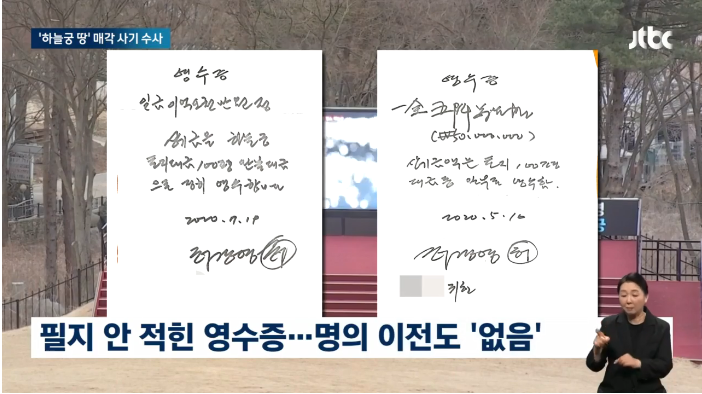 '하늘궁 땅' 매각 사기 수사
jtbc
영수증
일금 이억오천만원정
상기금을 하늘궁
토지대금, 100평 판매대금
으로 정히 영수합니다
2020. 7. 19
허경영 허
영수증
一金
(₩50,000,000)
상기 금액은 토지, 100평
대금중 일부로 영수함.
2020. 5. 10
허경영 허
귀하
필지 안 적힌 영수증…명의 이전도 '없음'